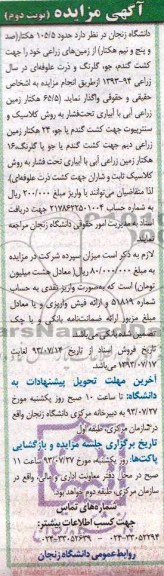 آگهی مزایده (نوبت دوم)
دانشگاه زنجان در نظر دارد حدود ۱۰۵/۵ هکتار(صد
و پنج و نیم هکتار) از زمین‌های زراعی خود را جهت
کشت گندم، جو، گلرنگ و ذرت علوفه‌ای در سال
زراعی ۹۴-۱۳۹۳ ازطریق انجام مزایده به اشخاص
حقیقی و حقوقی واگذار نماید. (۶۵/۵ هکتار زمین
زراعی آبی با آبیاری تحت‌فشار به روش کلاسیک و
سنترپیوت جهت کشت گندم یا جو، ۲۴ هکتار زمین
زراعی دیم جهت کشت گندم یا جو یا گلرنگ،۱۶
هکتار زمین زراعی آبی با آبیاری تحت فشار به روش
کلاسیک ثابت و شاران جهت کشت ذرت علوفه‌ای)،
لذا متقاضیان می‌توانند با واریز مبلغ ۲۰۰/۰۰۰ ریال
به شماره حساب ۲۱۷۸۶۲۳۵۰۱۰۰۴ جهت دریافت
اسناد به‌مدیریت امور حقوقی دانشگاه زنجان مراجعه
نمایند.
لازم به ذکر است میزان سپرده شرکت در مزایده
مبلغ ۸۰/۰۰۰/۰۰۰ ریال( معادل هشت میلیون
تومان) است که به‌صورت واریز نقدی به حساب
شماره ۵۱۸۱۹ و ارائه فیش واریزی و یا معادل
مبلغ مزبور ارائه ضمانت‌نامه بانکی و یا چک
تضمین شده می‌باشد.
تاریخ فروش اسناد از تاریخ ۹۳/۰۷/۱۴ لغایت
۱۳۹۳/۰۷/۱۷ می‌باشد.
آخرین مهلت تحویل پیشنهادات به
دانشگاه: تا ساعت ۱۰ صبح روز یکشنبه مورخ
۹۳/۰۷/۲۷ به دبیرخانه مرکزی دانشگاه زنجان واقع
در سازمان مرکزی، طبقه اول
تاریخ برگزاری جلسه مزایده و بازگشایی
پاکت‌ها: روز یکشنبه مورخ ۹۳/۰۷/۲۷ ساعت ۱۱
صبح در محل دفتر معاونت اداری و مالی، واقع در
سازمان مرکزی، طبقه دوم خواهد بود.
شماره‌های تماس
جهت کسب اطلاعات بیشتر:
۰۲۴-۳۳۰۵۲۶۳۹ - ۰۲۴-۳۳۰۵۲۲۹۴
روابط عمومی دانشگاه زنجان